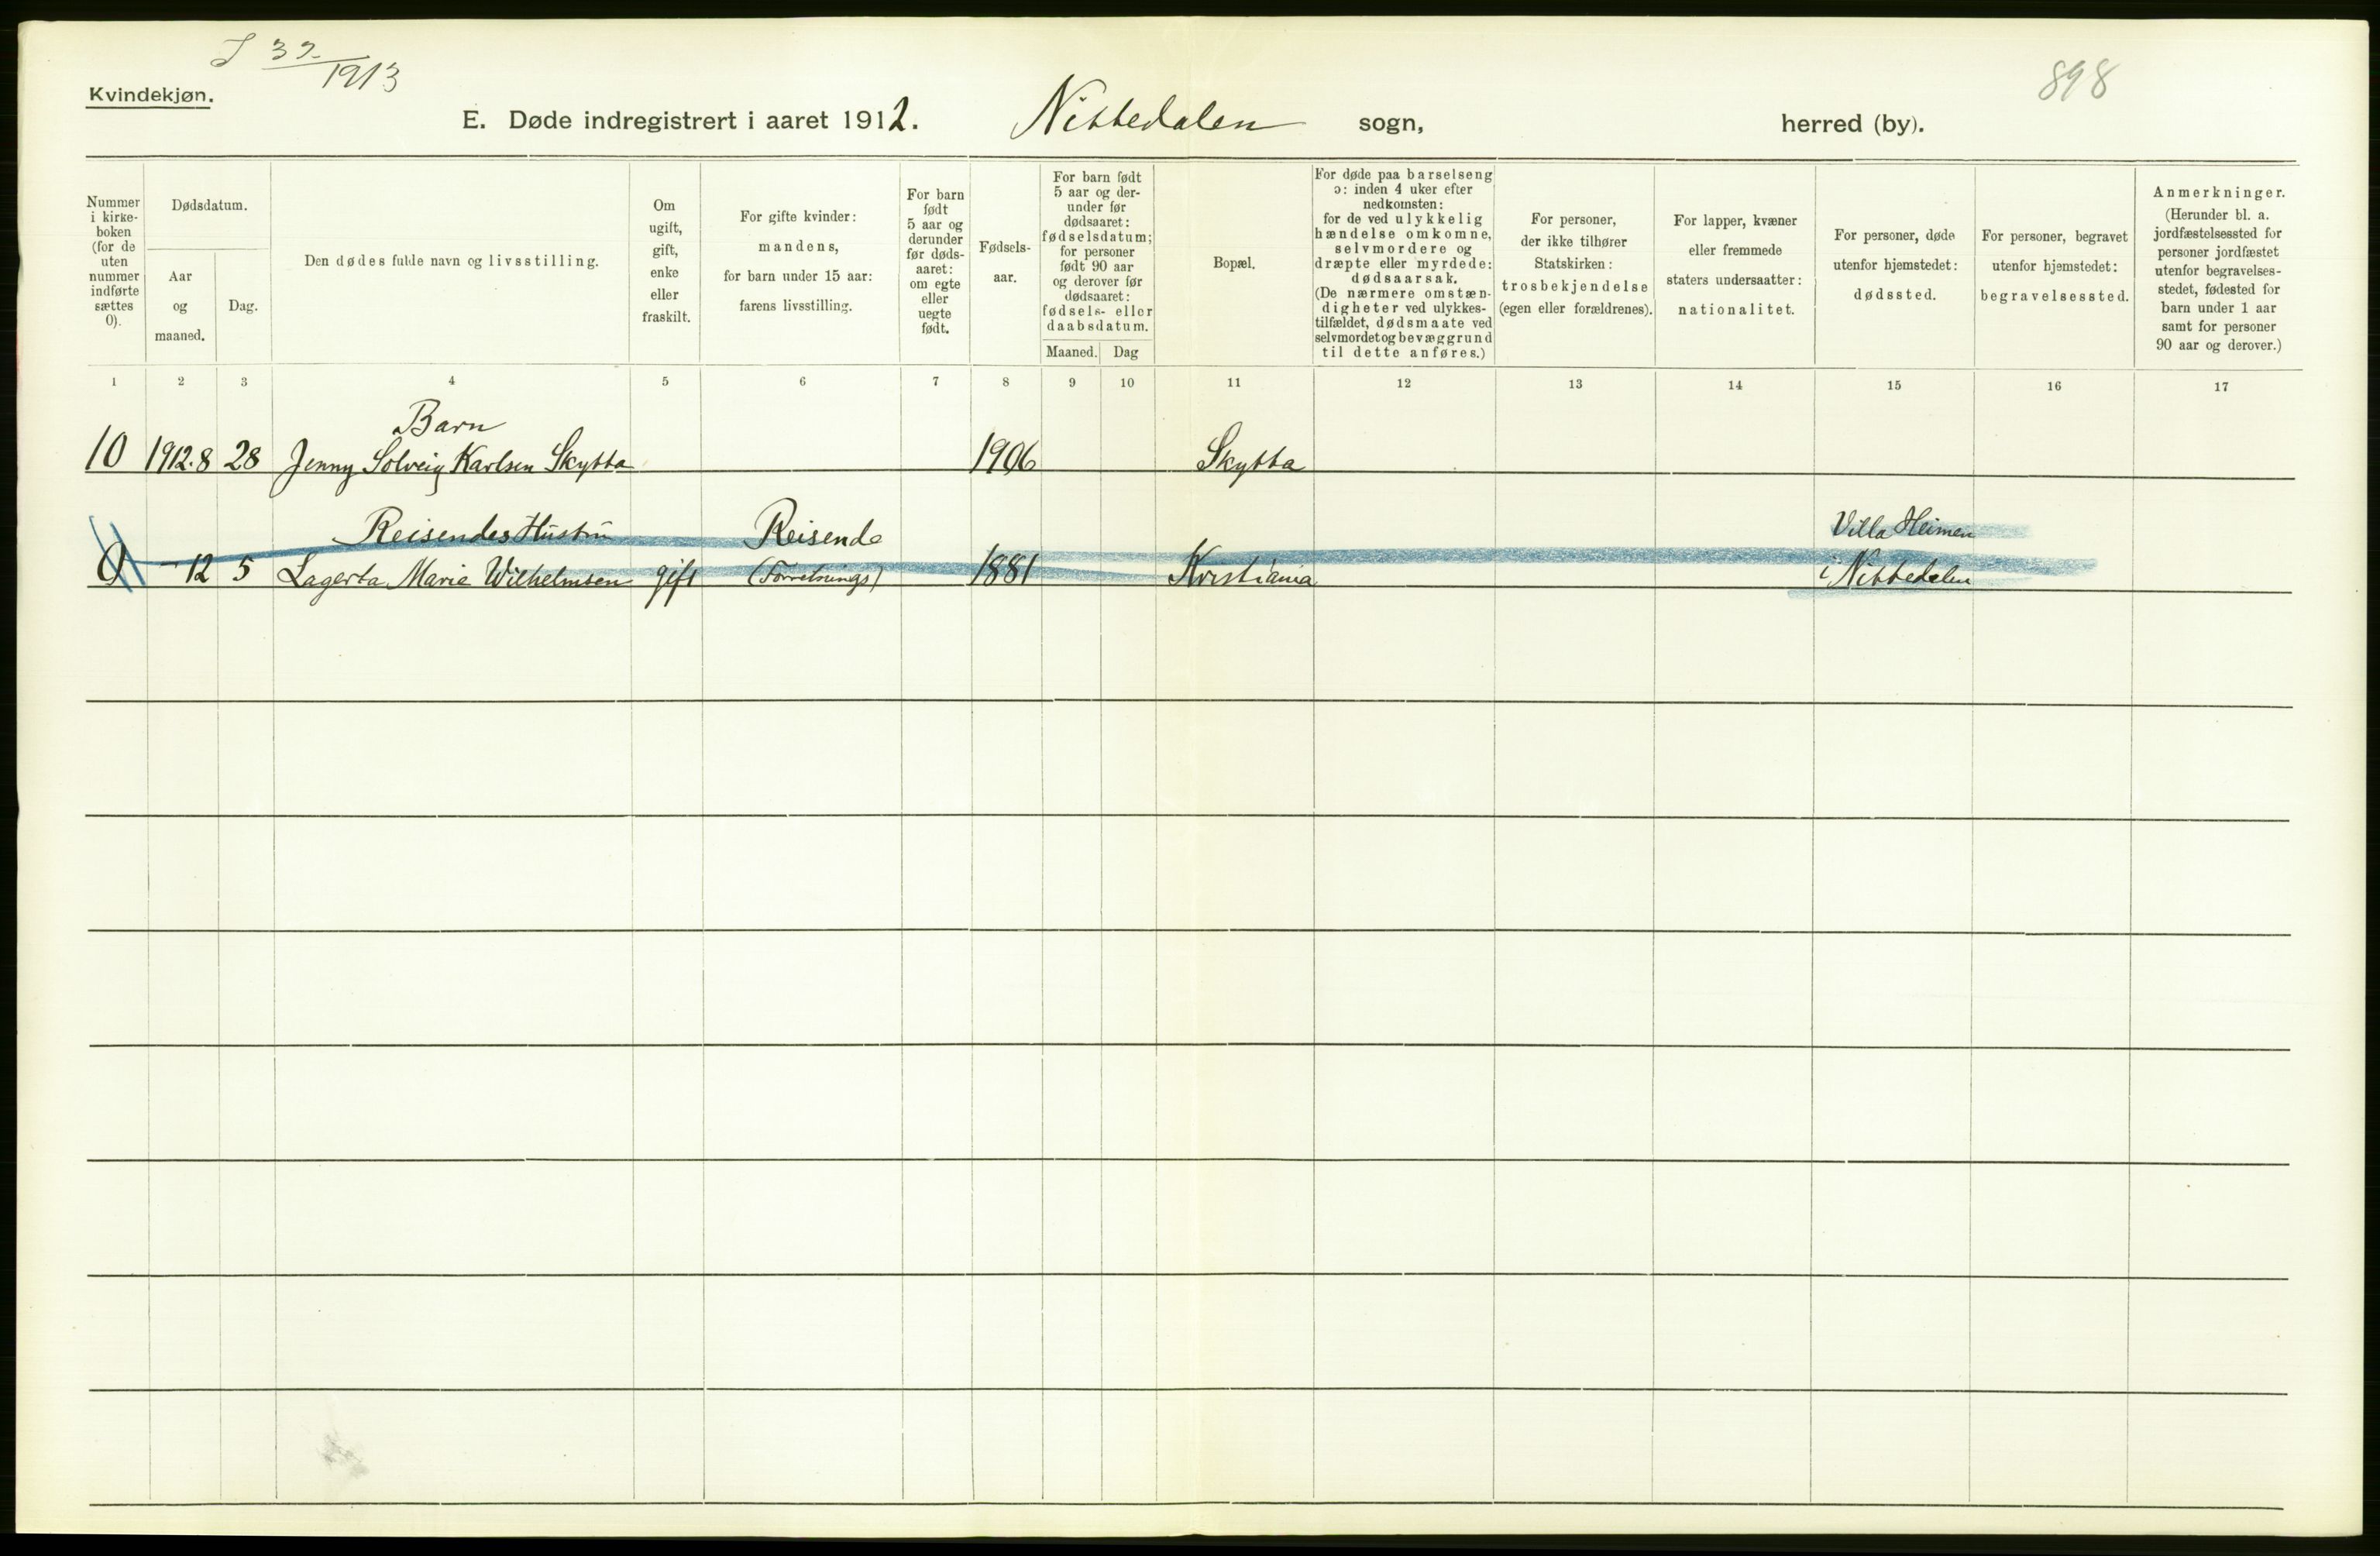 J 37
1913
898
Kvindekjøn.
E. Døde indregistrert i aaret 1912. Nittedalen sogn, herred (by).
Nummer i kirke- boken (for de uten nummer indførte sættes 0).
Dødsdatum.
Aar og maaned.
Dag.
Den dødes fulde navn og livsstilling.
Om ugift, gift, enke eller fraskilt.
For gifte kvinder: mandens, for barn under 15 aar: farens livsstilling.
For barn født 5 aar og derunder før døds- aaret: om egte eller uegte født.
Fødsels- aar.
For barn født 5 aar og der- under før dødsaaret: fødselsdatum; for personer født 90 aar og derover før dødsaaret: fødsels- eller daabsdatum.
Maaned. Dag
Bopæl.
For døde paa barselseng ɔ: inden 4 uker efter nedkomsten: for de ved ulykkelig hændelse omkomne, selvmordere og dræpte eller myrdede: dødsaarsak. (De nærmere omstæn- digheter ved ulykkes- tilfældet, dødsmaate ved selvmordet og bevæggrund til dette anføres.)
For personer, der ikke tilhører Statskirken: trosbekjendelse (egen eller forældrenes).
For lapper, kvæner eller fremmede staters undersaatter: nationalitet.
For personer, døde utenfor hjemstedet: dødssted.
For personer, begravet utenfor hjemstedet: begravelsessted.
Anmerkninger. (Herunder bl. a. jordfæstelsessted for personer jordfæstet utenfor begravelses- stedet, fødested for barn under 1 aar samt for personer 90 aar og derover.)
1 2 3 4 5 6 7 8 9 10 11 12 13 14 15 16 17
Barn
10 1912.8 28 Jenny Solveig Karlsen Skytta 1906 Skytta
Reisendes Hustru Reisende Villa Heimen
0 - 12 5 Lagerta Marie Wilhelmsen gift (Forretnings) 1881 Kristiania i Nittedalen